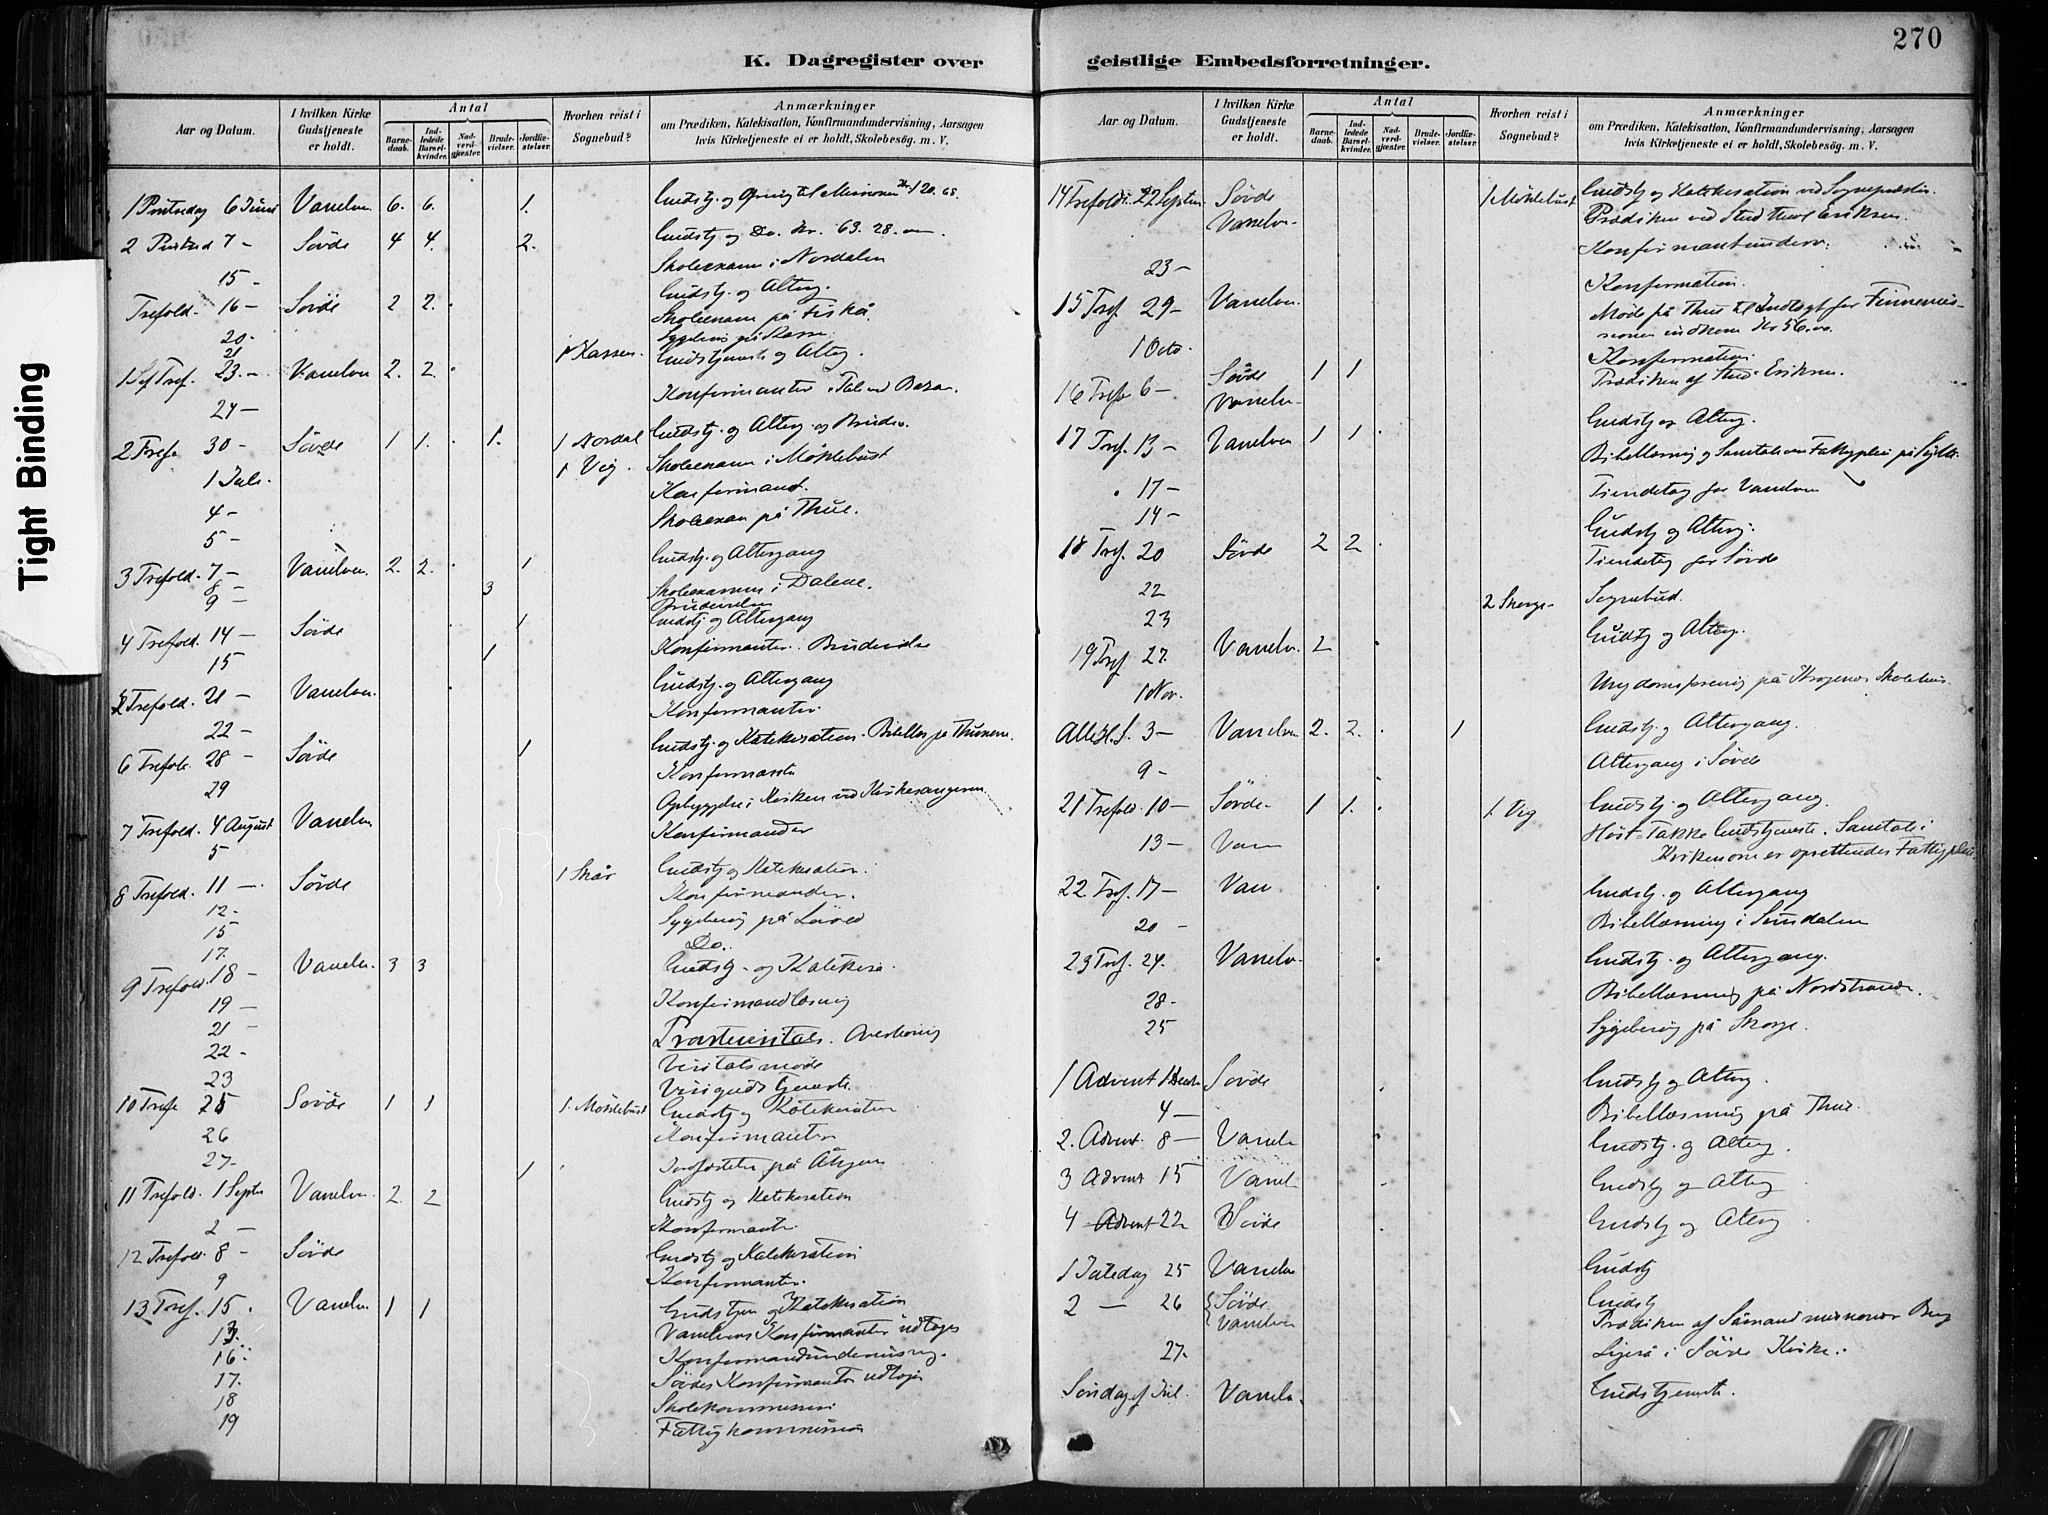 270
K. Dagregister over
geistlige Embedsforretninger.
Tight Binding
Aar og Datum.
I hvilken Kirke Gudstjeneste er holdt.
Antal
Barnedaab.
Indledede Barselkvinder.
Nadverdgjæster.
Brudevielser.
Jordfæstelser.
Hvorhen reist i Sognebud?
Anmærkninger
om Prædiken, Katekisation, Konfirmandundervisning, Aarsagen
hvis Kirketjeneste ei er holdt, Skolebesøg. m. V.
1 Pintsedag 6 Juni Vanelven 6. 6. 1. Gudstj. og Ofring til Missionen Kr 120. 68
2 Pintsed 7 - Søvde 4 4. 2. Gudstj og Do. Kr. 63. 28.
15 - Skoleexam i Nordalen
Trefold. 16 - Søvde 2 2. Gudstj. og Alterg.
20 - Skoleexam på Fiskå.
21
1 S ef Tref. 23. - Vanelven 2. 2. Gudstjeneste og Alterg.
24 - Konfirmanter.
2 Trefo 30 - Søvde 1 1. 1. 1 Nordal Gudstj. og Alterg. og Brudev.
1 Vig. Skoleexam i Møklebust
1 Juli. Konfirmand.
4 - Skoleexam på Thue.
5 -
3 Trefold. 7 - Vanelven. 2. 2. 1 Gudstj. og Altergang
8 - 3 Skoleexamen i Dalene.
9 - Brudevielse
4 Trefold. 14 - Søvde 1 Gudstj og Altergang
15 1 Konfirmanter. Brudevielse
5 Trefold. 21 - Vanelven. Gudstj. og Altergang
22 - Konfirmanter.
6 Trefold. 28 - Søvde 1 Gudstj. og Katekisation.
29 Konfirmanter
7 Trefold. 4 August Vanelven Opbyggelse i Kirken ved Kirkesangeren
5 Konfirmander
8 Trefold. 11 - Søvde 1 Skår Gudstj og Katekisation.
12 - Konfirmander.
15 Sygebesøg på
17. Do.
9 Trefold. 18 - Vanelv. 3 3 Gudstj. og Katekisa
19 - Konfirmandlæsning
21 - Provstevisitats.
22 - Visitatsmøde
23 Visi gudstjeneste.
10 Trefo 25 Søvde 1 1 1. Møklebust Gudstj og Katekisation
26 Konfirmanter
27. 1 Jordfæstelse på Åhjem
11 Trefold. 1 Septbr Vanelven. 2 2 Gudstj og Katekisation
2 - Konfirmanter
12 Trefold. 8 - Søvde Gudstj og Katekisation
9 Konfirmanter.
13 Tref. 15. Vanelven 1 1 Gudstjen og Katekisation
13. Vanelvens Konfirmanter udtoges
16. Konfirmandundervisng.
17. Søvdes Konfirmanter udtoges
18 Skolekommission
19 Fattigkommission
Aar og Datum.
I hvilken Kirke Gudstjeneste er holdt.
Antal
Barnedaab.
Indledede Barselkvinder.
Nadverdgjæster.
Brudevielser.
Jordfæstelser.
Hvorhen reist i Sognebud?
Anmærkninger
om Prædiken, Katekisation, Konfirmandundervisning, Aarsagen
hvis Kirketjeneste ei er holdt, Skolebesøg. m. V.
14 Trefoldi. 22 Septbr. Søvde 1 Møklebust Gudstj og Katekisation ved Sognepræsten.
Vanelv. Prædiken ved Stud theol Eriksen.
23 - Konfirmantunderv.
15 Tref. 29 - Vanelven. Konfirmation.
1 Octo. Møde på Thue til Indtægt for Finnemissionen indkom Kr 56.00
16 Trefo 6 - Søvde 1 1 Konfirmation.
Vanelv. Prædiken af Stud. Eriksen.
17 Tref. 13 - Vanelven 1 1. Gudstj og Alterg.
17 - Bibellæsning og Samtale om Fattigpleie på
14 - Tiendetag for Vanelven
18 Tref. 20 Søvde 2 2. Gudstj og Alterg.
22 Tiendetag for Søvde
23 2 Skorge - Sognebud.
19 Tref. 27. Vanelv. 2 Gudstj og Alterg.
1 Nov. Ungdomsforenig på Krogenes Skolehus
Alle H. S. 3 - Vanelven 2. 2. 1 Gudstj. og Altergang.
9 - Altergang i Søvde
21 Trefold. 10 - Søvde - 1 1. 1. Vig Gudstj. og Altergang.
13 - Vanv Høst-Takke Gudstjeneste. Samtale i
Kirken om er oprettendes Fattigpleie
22 Tref. 17 - Van Gudstj. og Altergang
20 - Bibellæsning i Sundalen
23 Tref. 24. Vanelv. Gudstj. og Altergang.
28 - Bibellæsning på Nordstranda.
25 Sygebesøg på Skorge.
1 Advent 1 Decbr Søvde Gudstj og Alterg.
4 - Bibellæsning på Thue.
2. Advent. 8 - Vanelv Gudstj. og Alterg.
3 Advent 15 Vanel. Gudstj og Alterg
4 Advent 22 Søvde Gudstj og Alterg
1 Juledag 25 Vanelv Gudstj
2 - 26 Søvde Gudstj
Vanelven Prædiken af Sømandsmissionær Berg
27. Ligeså i Søvde Kirke.
Søndag ef Jul. Vanelv. Gudstjeneste.